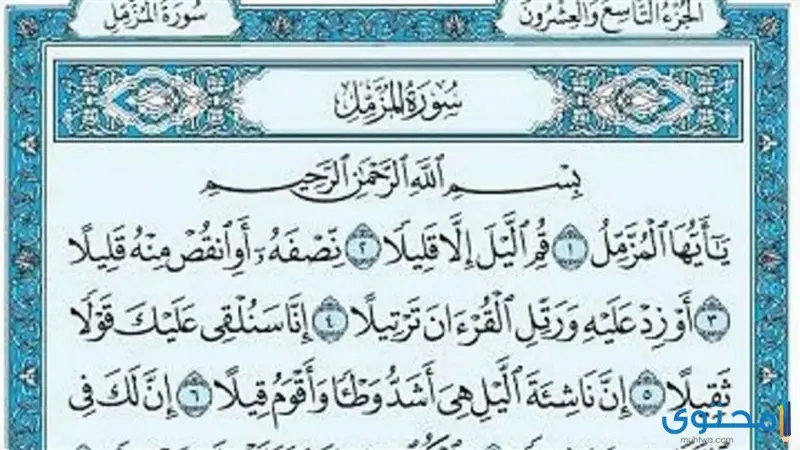 الجزء التاسع والعشرون
سورة المزمل
سُورَةُ المُزَّمِّلِ
بِسْمِ ٱللَّهِ ٱلرَّحْمَٰنِ ٱلرَّحِيمِ
يَٰٓأَيُّهَا ٱلْمُزَّمِّلُ ١ قُمِ ٱلَّيْلَ إِلَّا قَلِيلًا ٢ نِّصْفَهُۥٓ أَوِ ٱنقُصْ مِنْهُ قَلِيلًا
٣ أَوْ زِدْ عَلَيْهِ وَرَتِّلِ ٱلْقُرْءَانَ تَرْتِيلًا ٤ إِنَّا سَنُلْقِى عَلَيْكَ قَوْلًا
ثَقِيلًا ٥ إِنَّ نَاشِئَةَ ٱلَّيْلِ هِىَ أَشَدُّ وَطْـًٔا وَأَقْوَمُ قِيلًا ٦ إِنَّ لَكَ فِى
محتوى
muhtwa.com